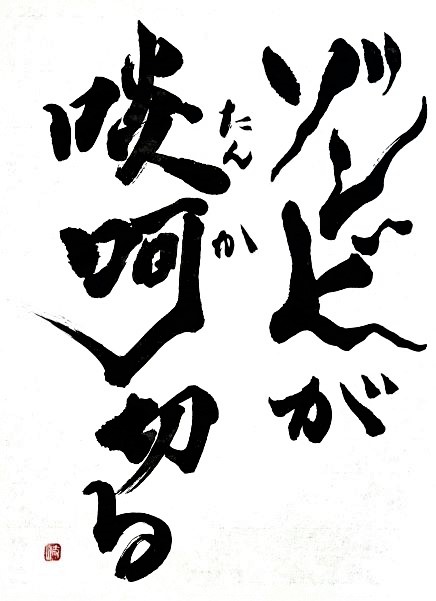 ゾンビが
啖呵切る
たんか